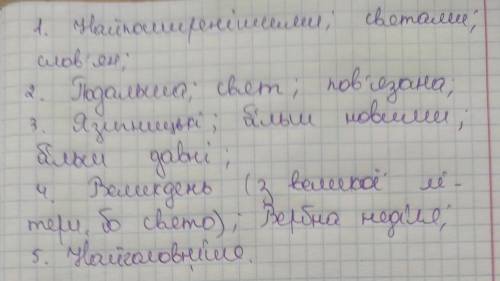 1. Найпоширенішими; святами;
слов'ян;
2. Подальша; свят; пов'язана;
3. Язичницькі; більш новими;
більш давні;
4. Великдень (з великої лі-
тери, бо свято); Вербна неділя;
5. Найголовніше.